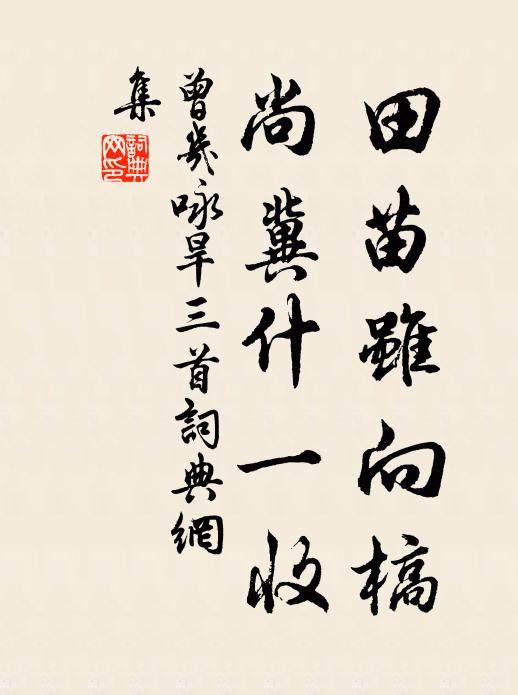 田苗雖向槁
尚冀什一收
曾幾咏旱三首詞典網
集
詞典網印